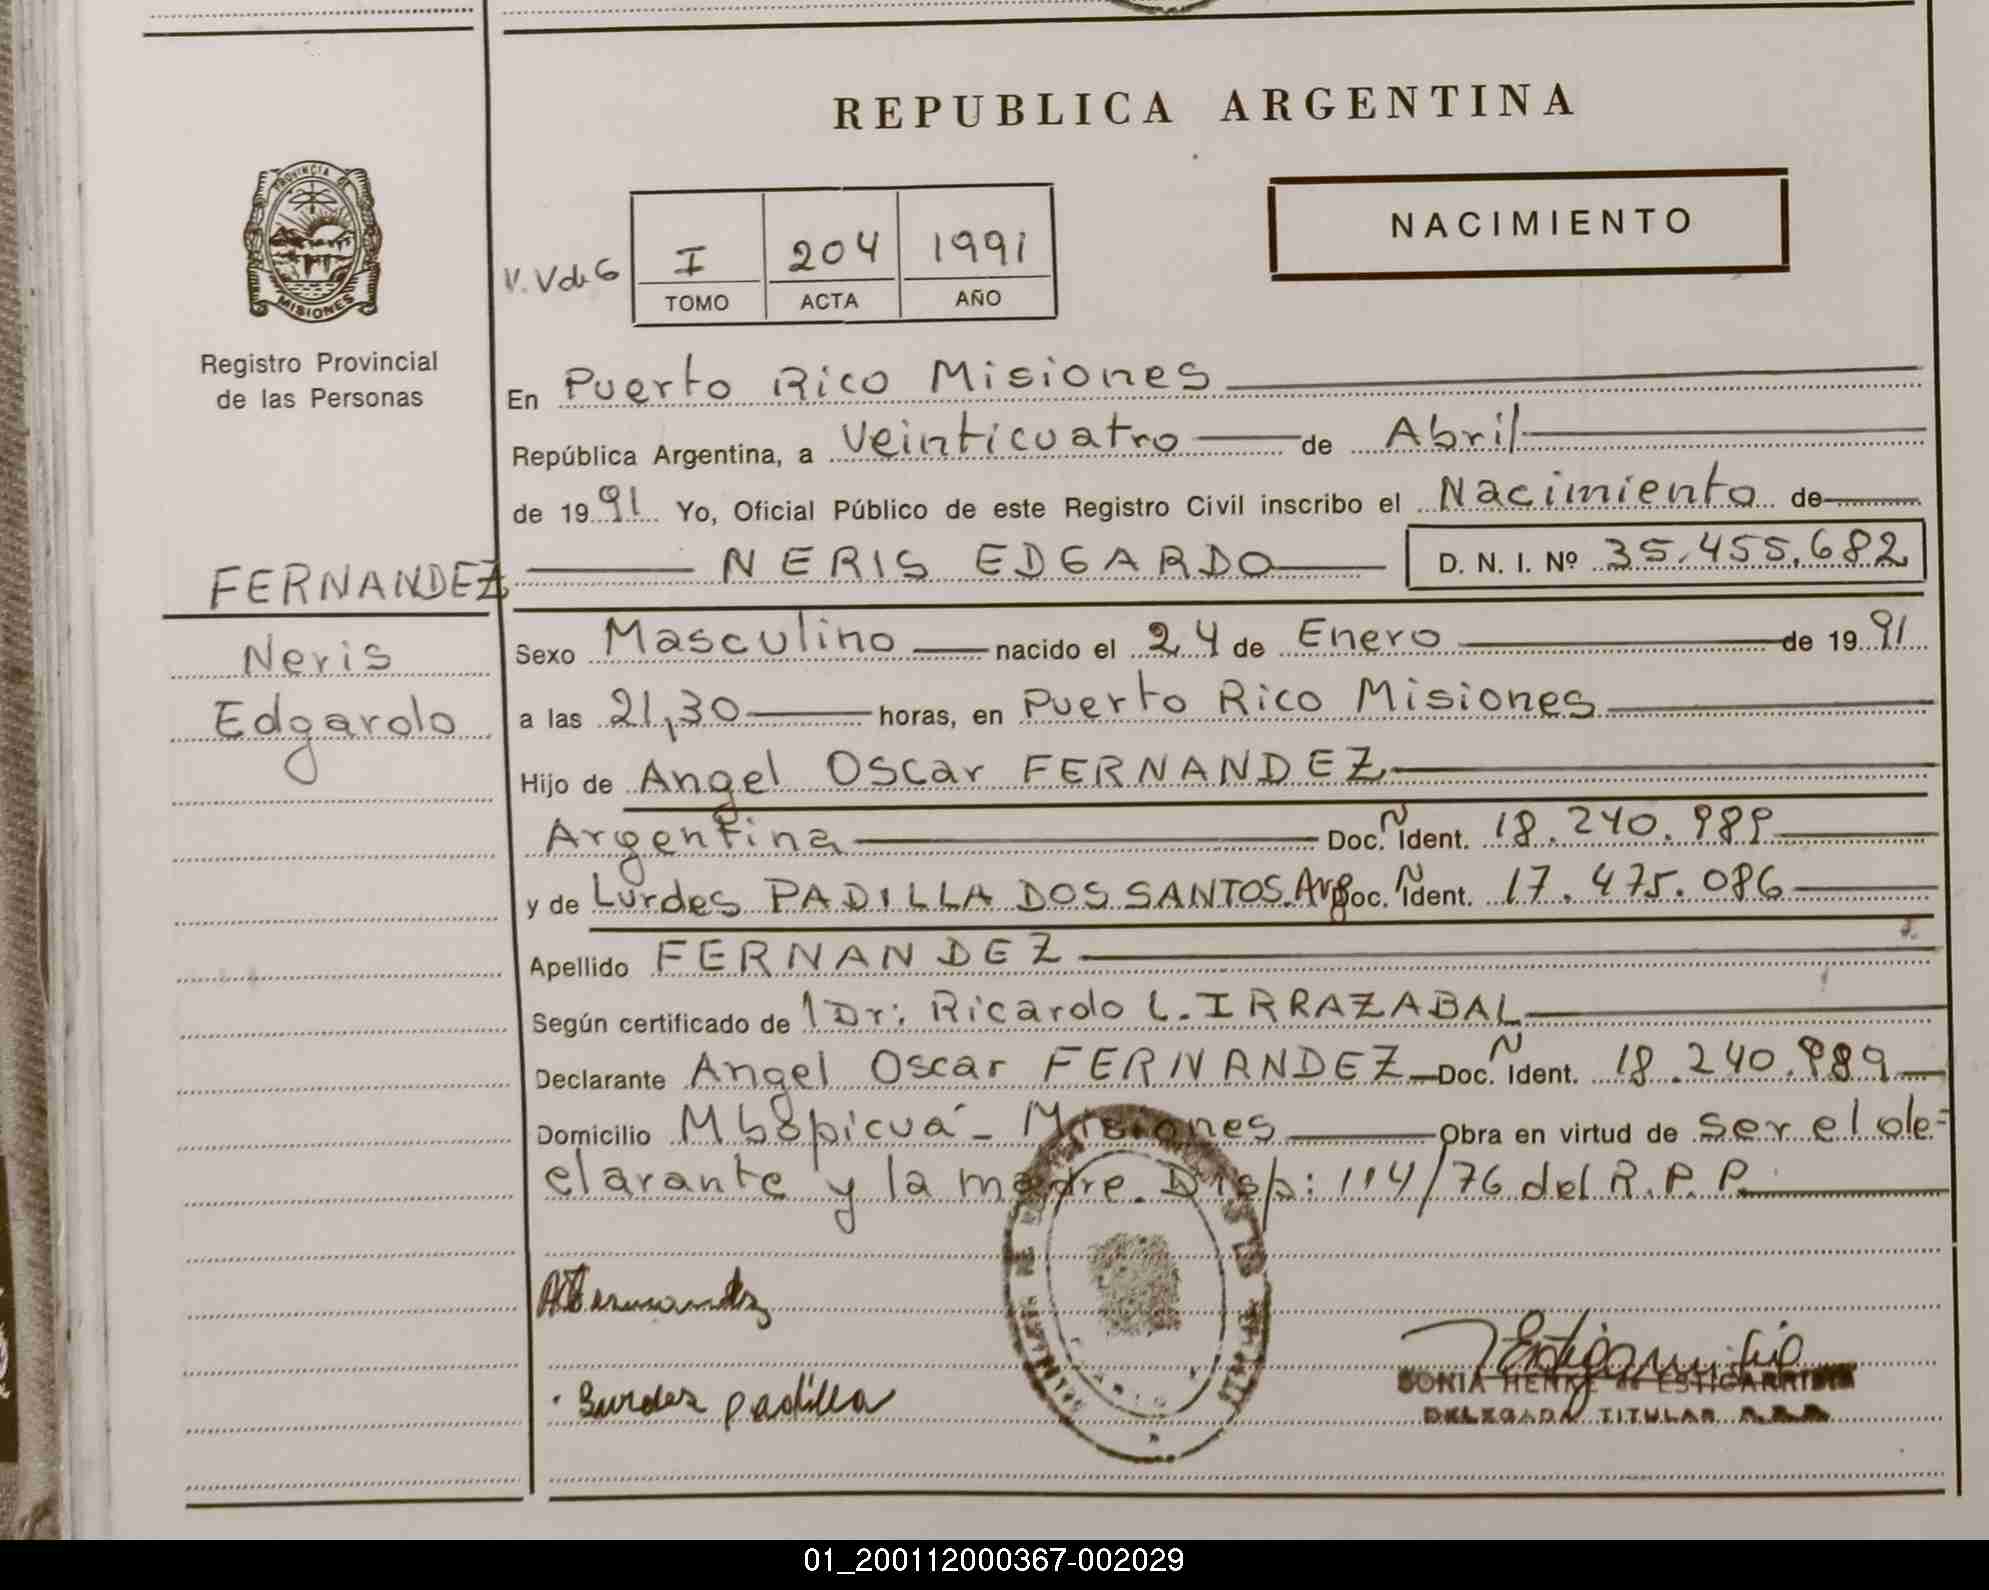 REPUBLICA ARGENTINA
NACIMIENTO
PROVINCIA DE MISIONES
V. Vde6 I 204 1991
TOMO ACTA AÑO
Registro Provincial
de las Personas
En Puerto Rico Misiones
República Argentina, a Veinticuatro de Abril
de 1991 Yo, Oficial Público de este Registro Civil inscribo el Nacimiento de
FERNANDEZ NERIS EDGARDO D. N. I. Nº 35.455.682
Neris
Edgardo
Sexo Masculino nacido el 24 de Enero de 1991
a las 21,30 horas, en Puerto Rico Misiones
Hijo de Angel Oscar FERNANDEZ
Argentina Doc. Ident. 18.240.989
y de Lurdes PADILLA DOS SANTOS. Arg Doc. Ident. 17.475.086
Apellido FERNANDEZ
Según certificado de 1 Dr: Ricardo L. IRRAZABAL
Declarante Angel Oscar FERNANDEZ Doc. Ident. 18.240.989
Domicilio Mbopicuá - Misiones Obra en virtud de ser el de=
clarante y la madre. Disp: 114/76 del R.P.P.
AFernandez
Lurdes padilla
SONIA HENKE de ESTIGARRIBIA
DELEGADA TITULAR
01_200112000367-002029